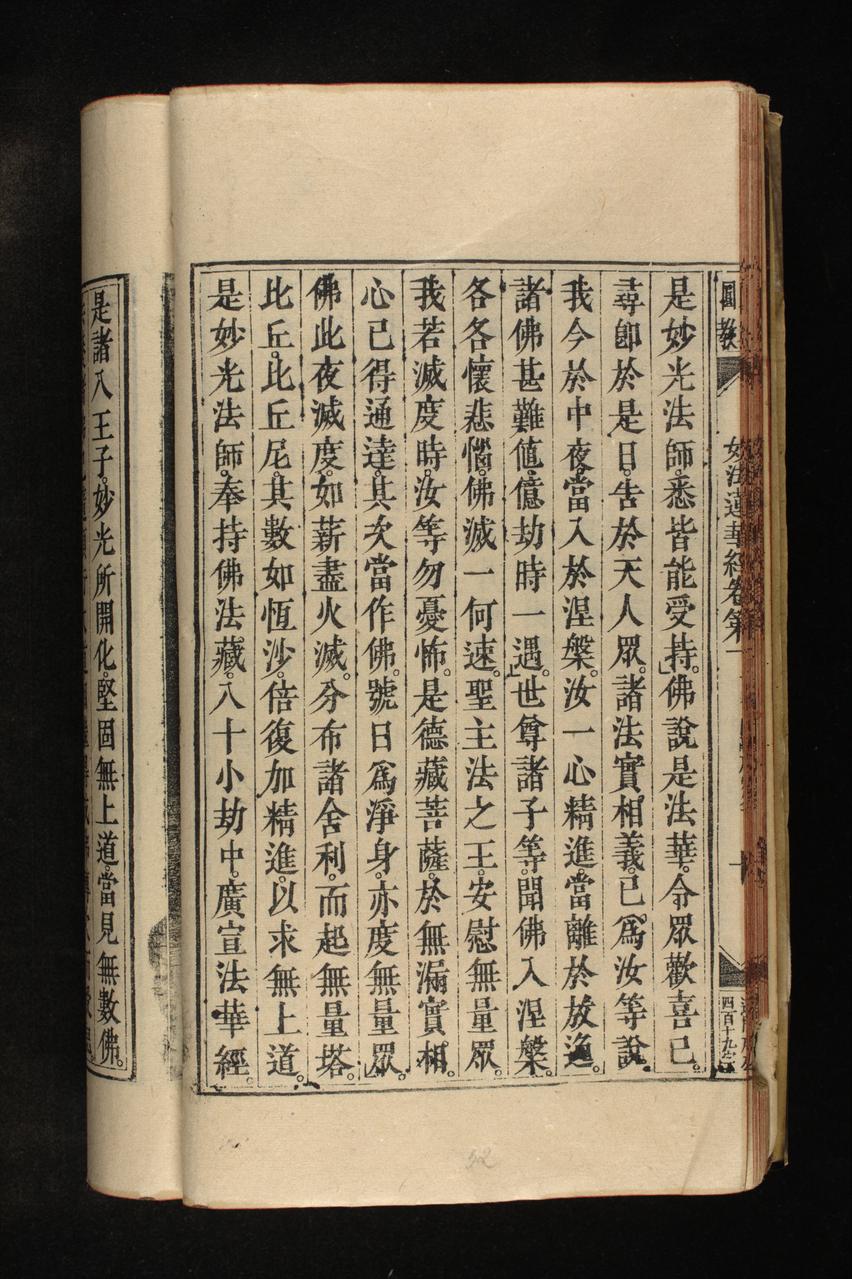 妙法蓮華經卷第一
四百十九
是妙光法師。悉皆能受持。佛說是法華。令眾歡喜已。
尋卽於是日。告於天人眾。諸法實相義。已爲汝等說。
我今於中夜。當入於涅槃。汝一心精進。當離於放逸。
諸佛甚難值。億劫時一遇。世尊諸子等。聞佛入涅槃。
各各懷悲惱。佛滅一何速。聖主法之王。安慰無量眾。
我若滅度時。汝等勿憂怖。是德藏菩薩。於無漏實相。
心已得通達。其次當作佛。號曰爲淨身。亦度無量眾。
佛此夜滅度。如薪盡火滅。分布諸舍利。而起無量塔。
比丘。比丘尼。其數如恆沙。倍復加精進。以求無上道。
是妙光法師。奉持佛法藏。八十小劫中。廣宣法華經。
是諸八王子。妙光所開化。堅固無上道。當見無數佛。